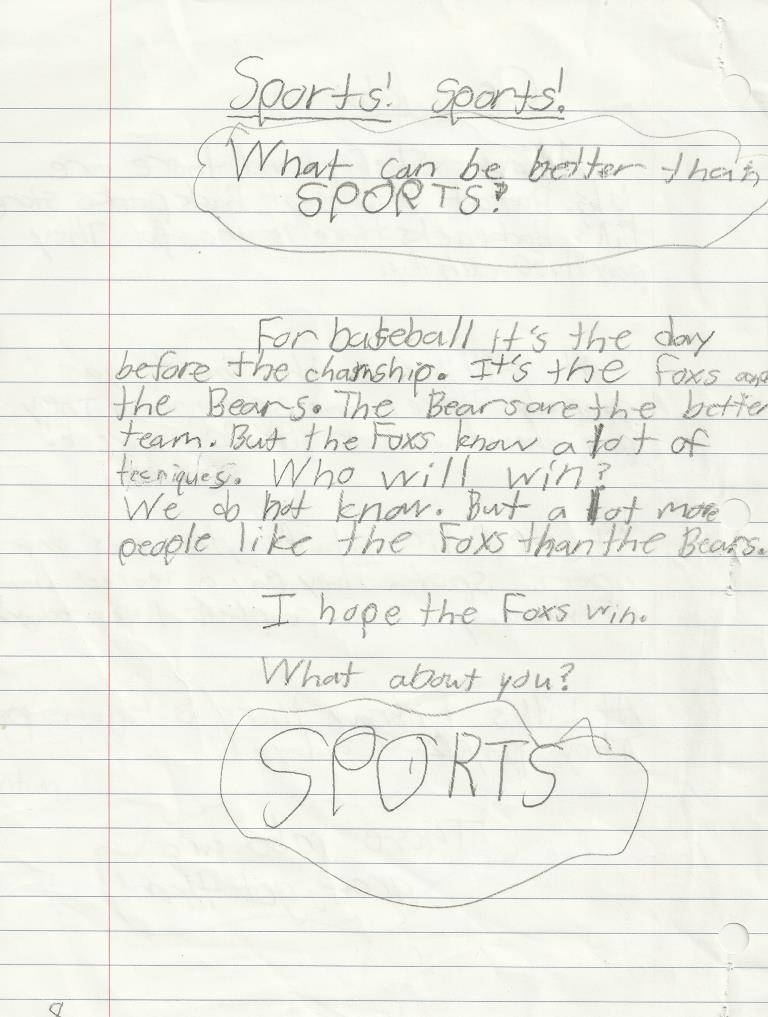 Sports! Sports!
What can be better than
SPORTS?
For baseball it's the day
before the chamship. It's the Foxs and
the Bears. The Bears are the better
team. But the Foxs know a lot of
tecniques. Who will win?
We do not know. But a lot more
people like the Foxs than the Bears.
I hope the Foxs win.
What about you?
SPORTS
8